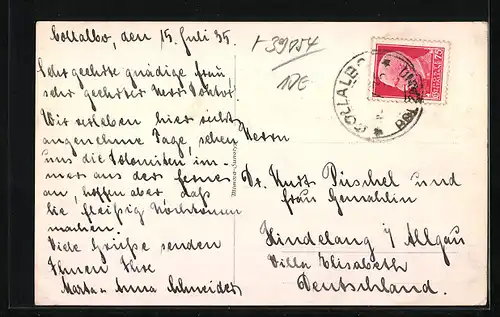 Collalbo, den 15. Juli 35.
Sehr geehrte gnädige Frau,
sehr geehrter Herr Doktor!
Wir verleben hier sehr
angenehme Tage, sehen
uns die Dolomiten im-
mer aus der Ferne
an, hoffen aber daß
Sie fleißig
machen.
Viele Grüße senden
Ihnen Ihre
Marta u Anna Schneider
+ 39054
10E
COLLALBO
75
Herrn
Dr. Kurt Püschel und
Frau Gemahlin
Hindelang i/ Allgäu
Villa Elisabeth
Deutschland.